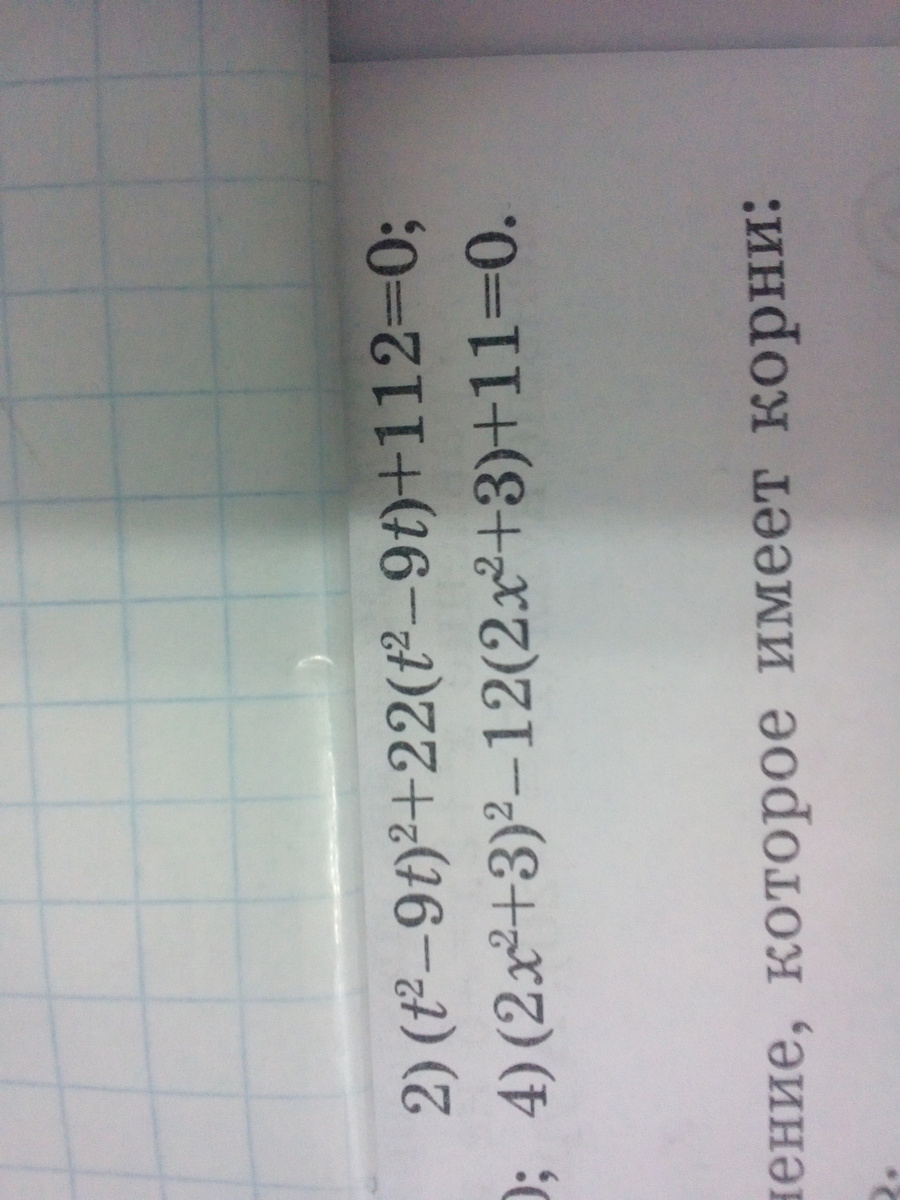 2) (t²–9t)²+22(t²–9t)+112=0;
); 4) (2x²+3)²–12(2x²+3)+11=0.
ение, которое имеет корни: